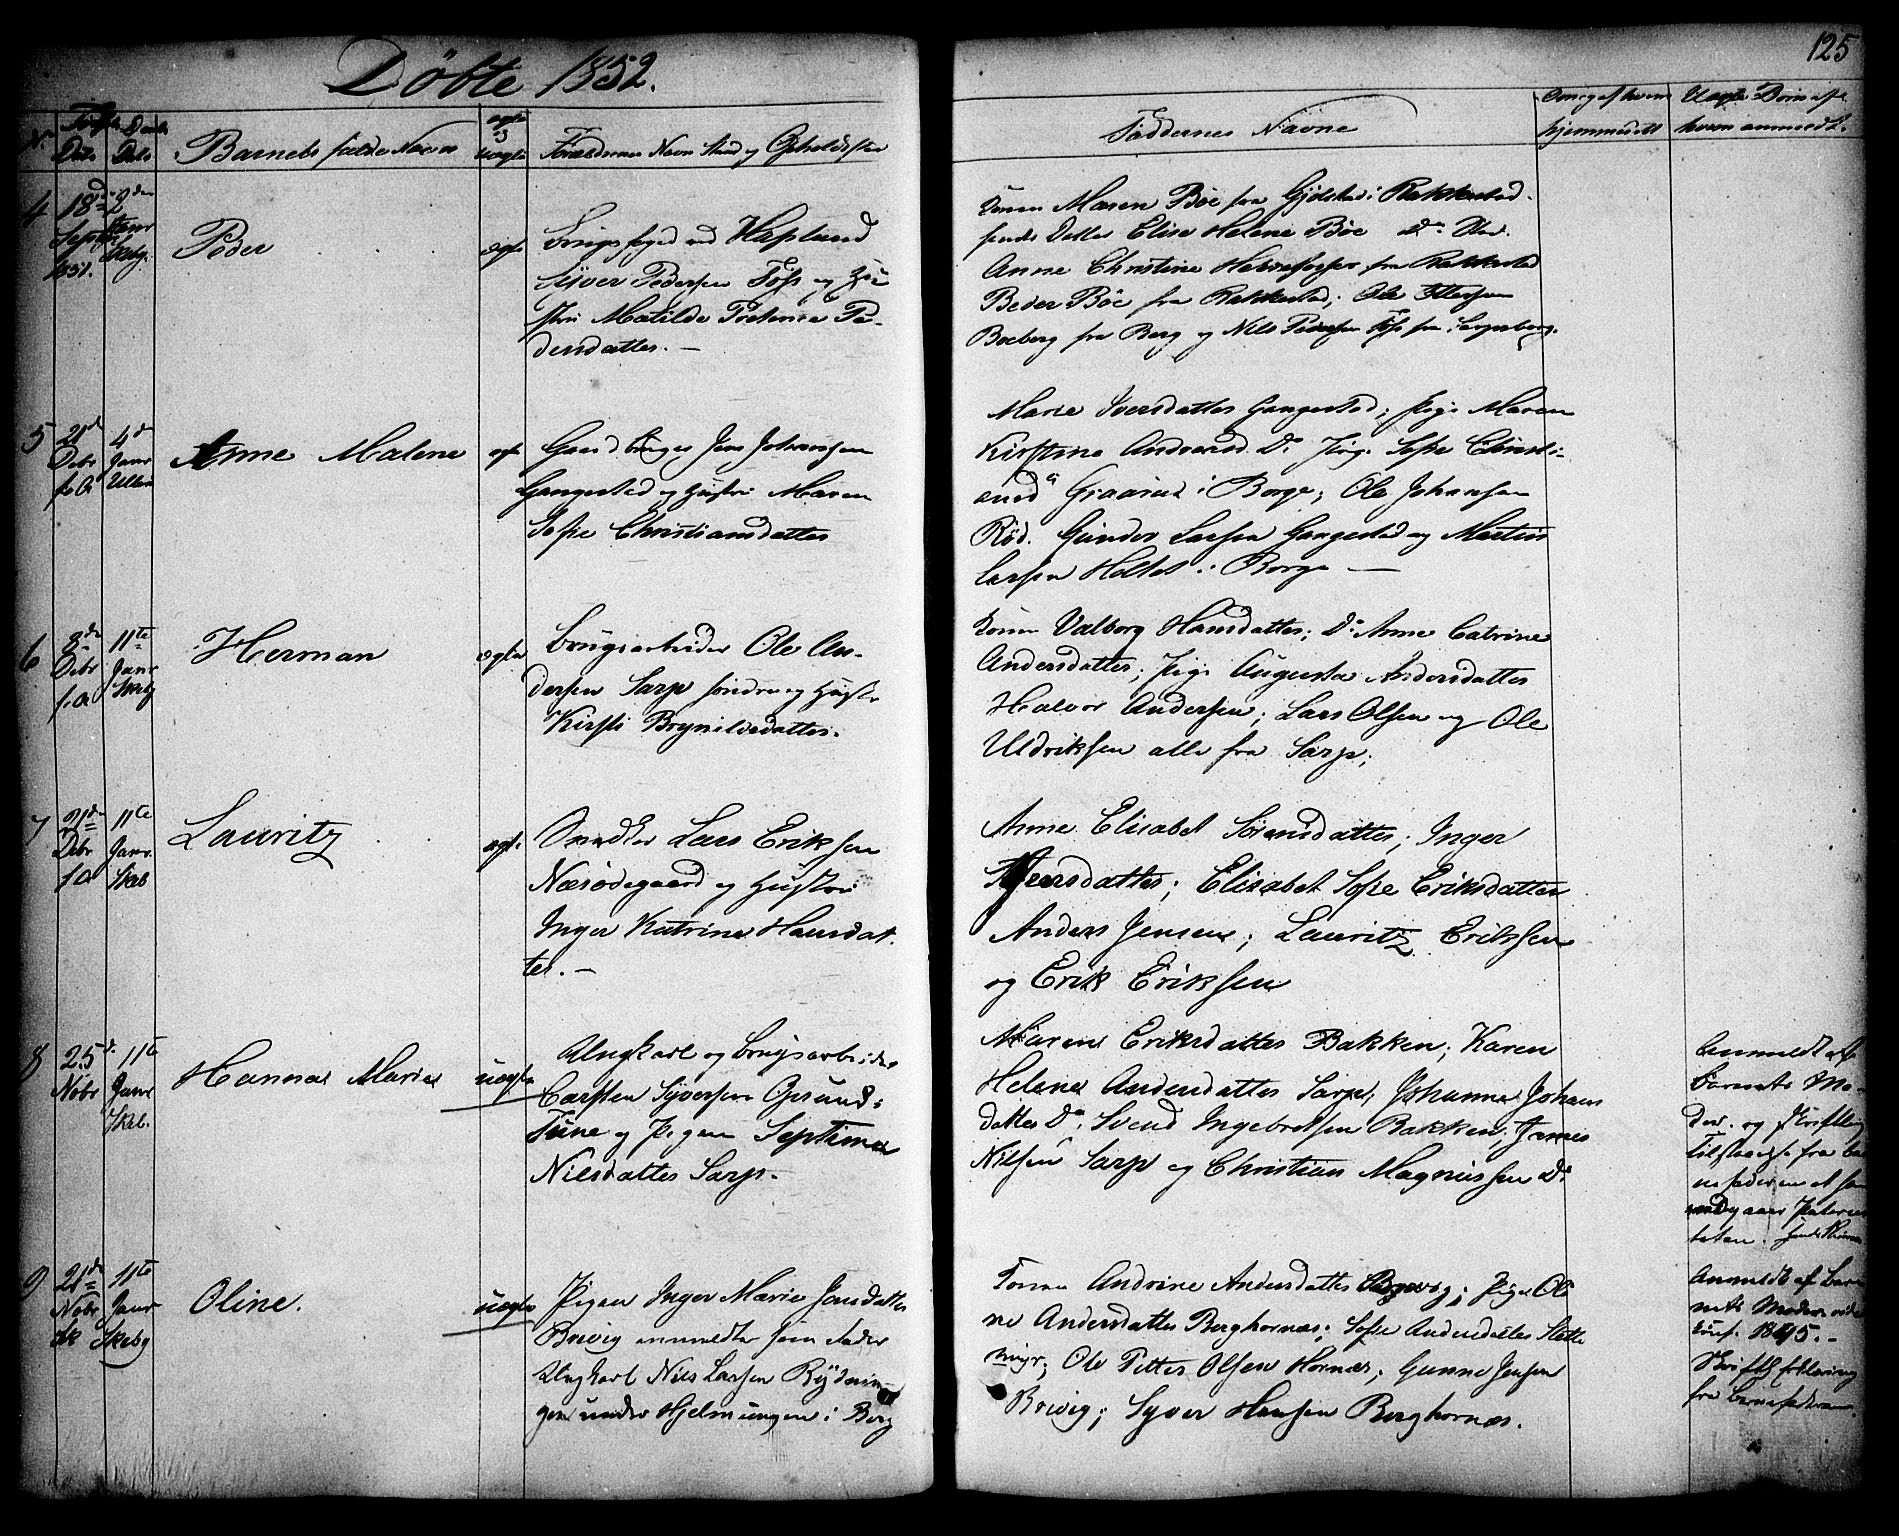 Döbte 1852.
125
No
Döbte
Dato
Barnets fulde Navn
ægte
uægte
Forældrenes Navn Stand og Opholdssted
Faddernes Navne
hjemmedöbt
Uægte Börn af
hvem anmeldt.
4
18de
Septbr
1851.
2den
Janr
Skbg.
Peder
ægte
Brugsfoged ved Hafslund
Syver Pedersen Foss og Hu-
stru Matilde Pe-
dersdatter. —
Konen Maren Böe fra Gjölstad i Rakkestad
Elise Helene Böe Do
Anne Christine fra Rakkestad
Peder Böe fra Rakkestad; Ole
Boeberg fra Berg og Nils Pedersen Foss fra Sarpsborg.
5
21de
Debr
f. A
4de
Janr
Ullerö
Anne Malene
ægte
Gaardbruger Jens Johansen
Gangestad og Hustru Maren
Sofie Christiansdatter
Marie Iversdatter Gangestad; Pige Maren
Kirstine Andreasd. Do Pige Sofie Christi-
ansd. i Borge; Ole Johansen
Röd. Gunder Larsen Gangestad og Martin
Larsen Holtet i Borge —
6
8de
Debr
f. A
11te
Janr
Skbg
Herman
ægte
Brugsarbeider Ole An-
dersen Sarp söndre og Hustru
Kirsti Brynildsdatter.
Konen Valborg Hansdatter; Do Anne Catrine
Andersdatter; Pige Augusta Andersdatter
Halvor Andersen; Lars Olsen og Ole
Uldriksen alle fra Sarp;
7
21de
Debr
f. A
11te
Janr.
Skeb
Lauritz
ægte
Snedker Lars Eriksen
Næsödegaard og Hustru
Inger Katrine Hansdat-
ter. —
Anne Elisabet Sörensdatter; Inger
Elisabet Sofie Eriksdatter
Anders Jensen; Lauritz Eriksen
og Erik Eriksen
8
25de
Nobr
11te
Janr
Skeb.
Hanna Marie
uægte
Ungkarl og Brugsarbeider
Carsten Syversen Grund-
Tune og Pigen Septima
Nilsdatter Sarp.
Maren Eriksdatter Bakken; Karen
Helene Andersdatter Sarp; Johanne Johans
datter Do. Svend Ingebretsen Bakken; James
Nilsen Sarp og Christian Magnussen Do
Anmeldt af
Barnets Mo-
der. og skriftlig
Tilstaaelse fra Bar
nefaderen
9
21de
Nobr
11te
Janr
Skebg
Oline.
uægte
Pigen Inger Marie Jonsdatter
Brevig anmeldte som Fader
Ungkarl Nils Larsen Rödnin-
gen under Hjelmungen i Berg
Konen Andrine Andersdatter Brevig; Pige Oli
ne Andersdatter Berghornæs; Sofie Andersdatter Slette
myr; Ole Petter Olsen Hornæs; Gunne Jensen
Brevig; Syver Hansen Berghornæs.
Anmeldt af Bar
nets Moder
1845. —
Skriftlig Erklæring
fra Barnefaderen.